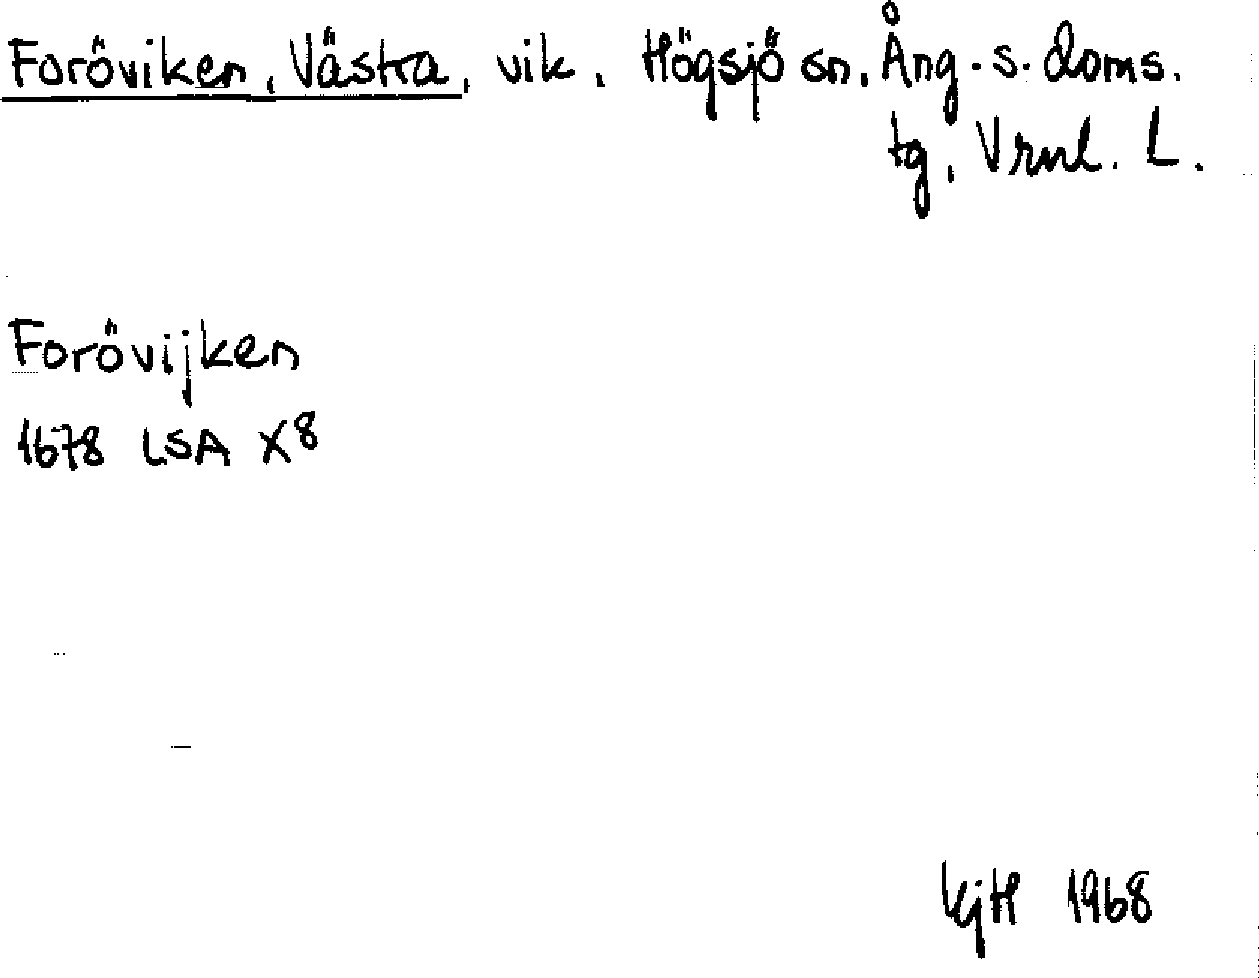 Foröviken, Västra, vik. Högsjö sn. Ång. s. doms.
tg, Vrnl. L.
Forövijken
1678 LSA X8
KjH 1968